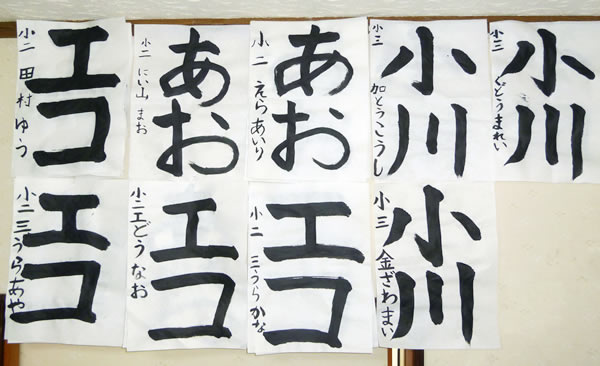 エコ
小二 田村ゆう
あお
小二 にい山まお
あお
小二 えらあいり
小川
小三 加とうこうし
小川
小三 くどうまれい
エコ
小二 三うらあや
エコ
小二 エどうなお
エコ
小二 三うらかな
小川
小三 金ざわまい